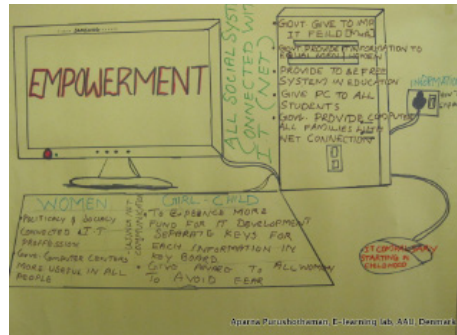 EMPOWERMENT
ALL SOCIAL SYSTEM
CONNECTED WITH
IT (NET)
• GOVT GIVE TO IMP
IT FEILD
• GOVT PROVIDE INFORMATION TO
• PROVIDE TO BE FREE
SYSTEM IN EDUCATION
• GIVE PC TO ALL
STUDENTS
• GOVT. PROVIDE COMPUTER
ALL FAMILIES WITH
NET CONNECTION
WOMEN
• POLITICALY & SOCIALY
CONNECTED I.T
PROFFESSION
• GOVT. COMPUTER CENTERS
MORE USEFUL IN ALL
PEOPLE
GIRL-CHILD
• TO EXPENCE MORE
FUND FOR IT DEVELOPMENT
• SEPARATE KEYS FOR
EACH INFORMATION IN
KEY BOARD
• GIVE AWARD TO ALL WOMAN
TO AVOID FEAR
STARTING IN
CHILDHOOD
Aparna Purushothaman, E-learning lab, AAU, Denmark